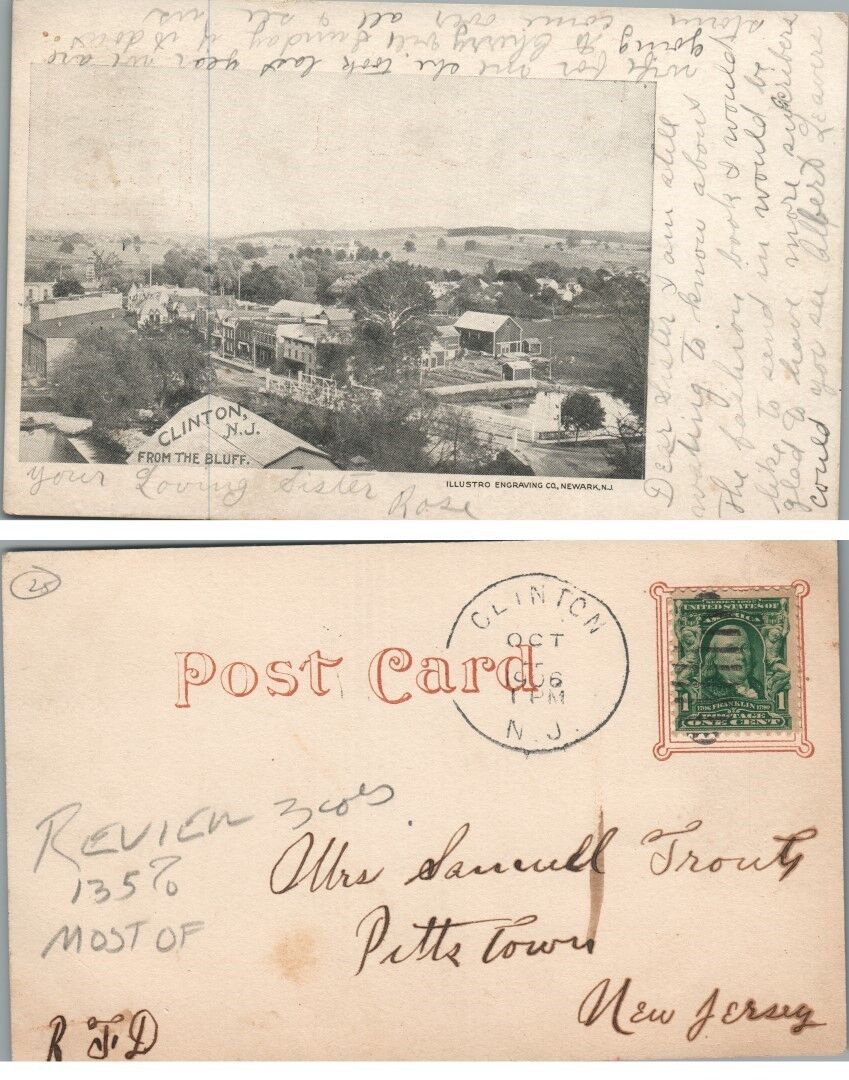 Dear Sister I am still
waiting to know about
the fashion book & would
like to send in would be
glad to have more subscribers
could you see Albert Leavers
wife for one she took last year we are
going to Cherry vill Sunday if it dont
storm come over all & see us
CLINTON,
N.J.
FROM THE BLUFF.
ILLUSTRO ENGRAVING CO., NEWARK, N.J.
Your Loving Sister Rose
25
Post Card
CLINTON
OCT
1906
1 PM
N.J.
UNITED STATES OF
AMERICA
1 1706 FRANKLIN 1790 1
POSTAGE
ONE CENT
REVIEW
135?
MOST OF
Mrs Samuell Trouts
Pitts Town
New Jersey
R F D